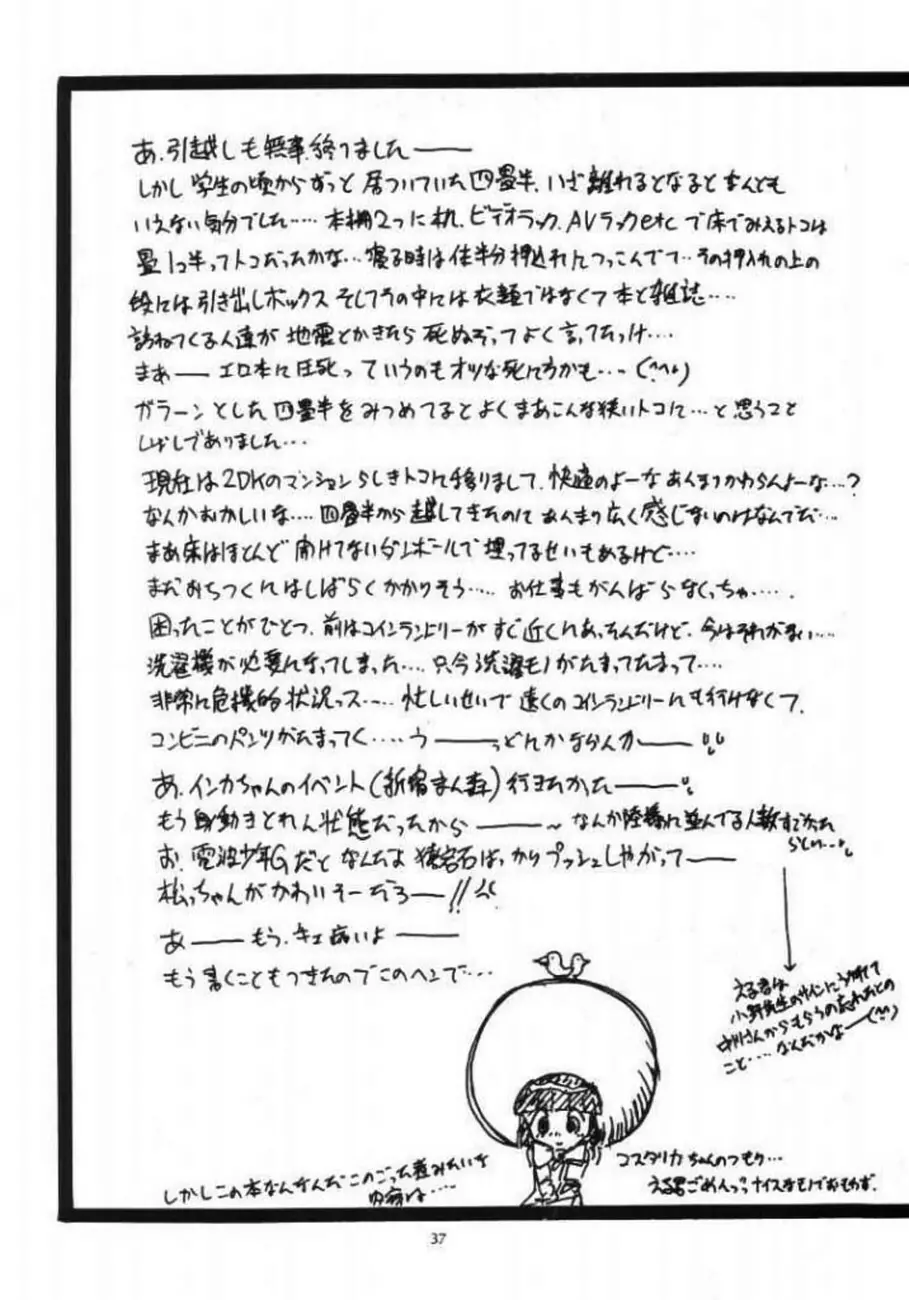 あ、引越しも無事、終りました――
しかし学生の頃からずっと居ついていた四畳半、いざ離れるとなるとなんとも
いえない気分でした‥‥本棚2つに机、ビデオラック、AVラックetcで床でみえるトコは
畳1つ半ってトコだったかな…寝る時は体半分押込れにつっこんでて‥その押入れの上の
段には引き出しボックスそしてその中には衣類ではなくて本と雑誌‥‥
訪ねてくる人達が地震とかきたら死ぬぞってよく言ってたっけ‥‥
まあ――エロ本に圧死っていうのもオツな死に方かも‥‥(^^;)
ガラーンとした四畳半をみつめてるとよくまあこんな狭いトコに…と思うこと
しばしでありました…
現在は2DKのマンションらしきトコに移りまして、快適のよーなあんまりかわらんよーな…?
なんかおかしいな‥‥四畳半から越してきたのにあんまり広く感じないのはなんでだ‥‥
まあ床はほとんど開けてないダンボールで埋ってるせいもあるけど‥‥
まだおちつくにはしばらくかかりそう‥‥お仕事もがんばらなくっちゃ‥‥.
困ったことがひとつ、前はコインランドリーがすぐ近くにあったんだけど、今はそれがない‥‥
洗濯機が必要になってしまった‥‥只今洗濯モノがたまってたまって‥‥
非常に危機的状況っス‥‥忙しいせいで遠くのコインランドリーにも行けなくて、
コンビニのパンツがたまってく‥‥う――っどんかならんか――
あ、インカちゃんのイベント(新宿まんが森)行きたかった――
もう身動きとれん状態だったから――～なんか陸橋に並んでる人数すごかった
らしい…。
お、電波少年Gだとなんだよ猿岩石ばっかりプッシュしやがって――
松っちゃんがかわいそーだろ――!!
あ――もう、キェ病いよ――
もう書くこともつきたのでこのヘンで…
える君は
小野先生のサインにうかれて
さんからもらうの忘れたとの
こと‥‥なんだかな――(^^)
コスタリカちゃんのつもり…
える君ごめんっっナイスなモノでおもわず.
しかしこの本なんなんだこのごった煮みたいな
内容は‥‥
37